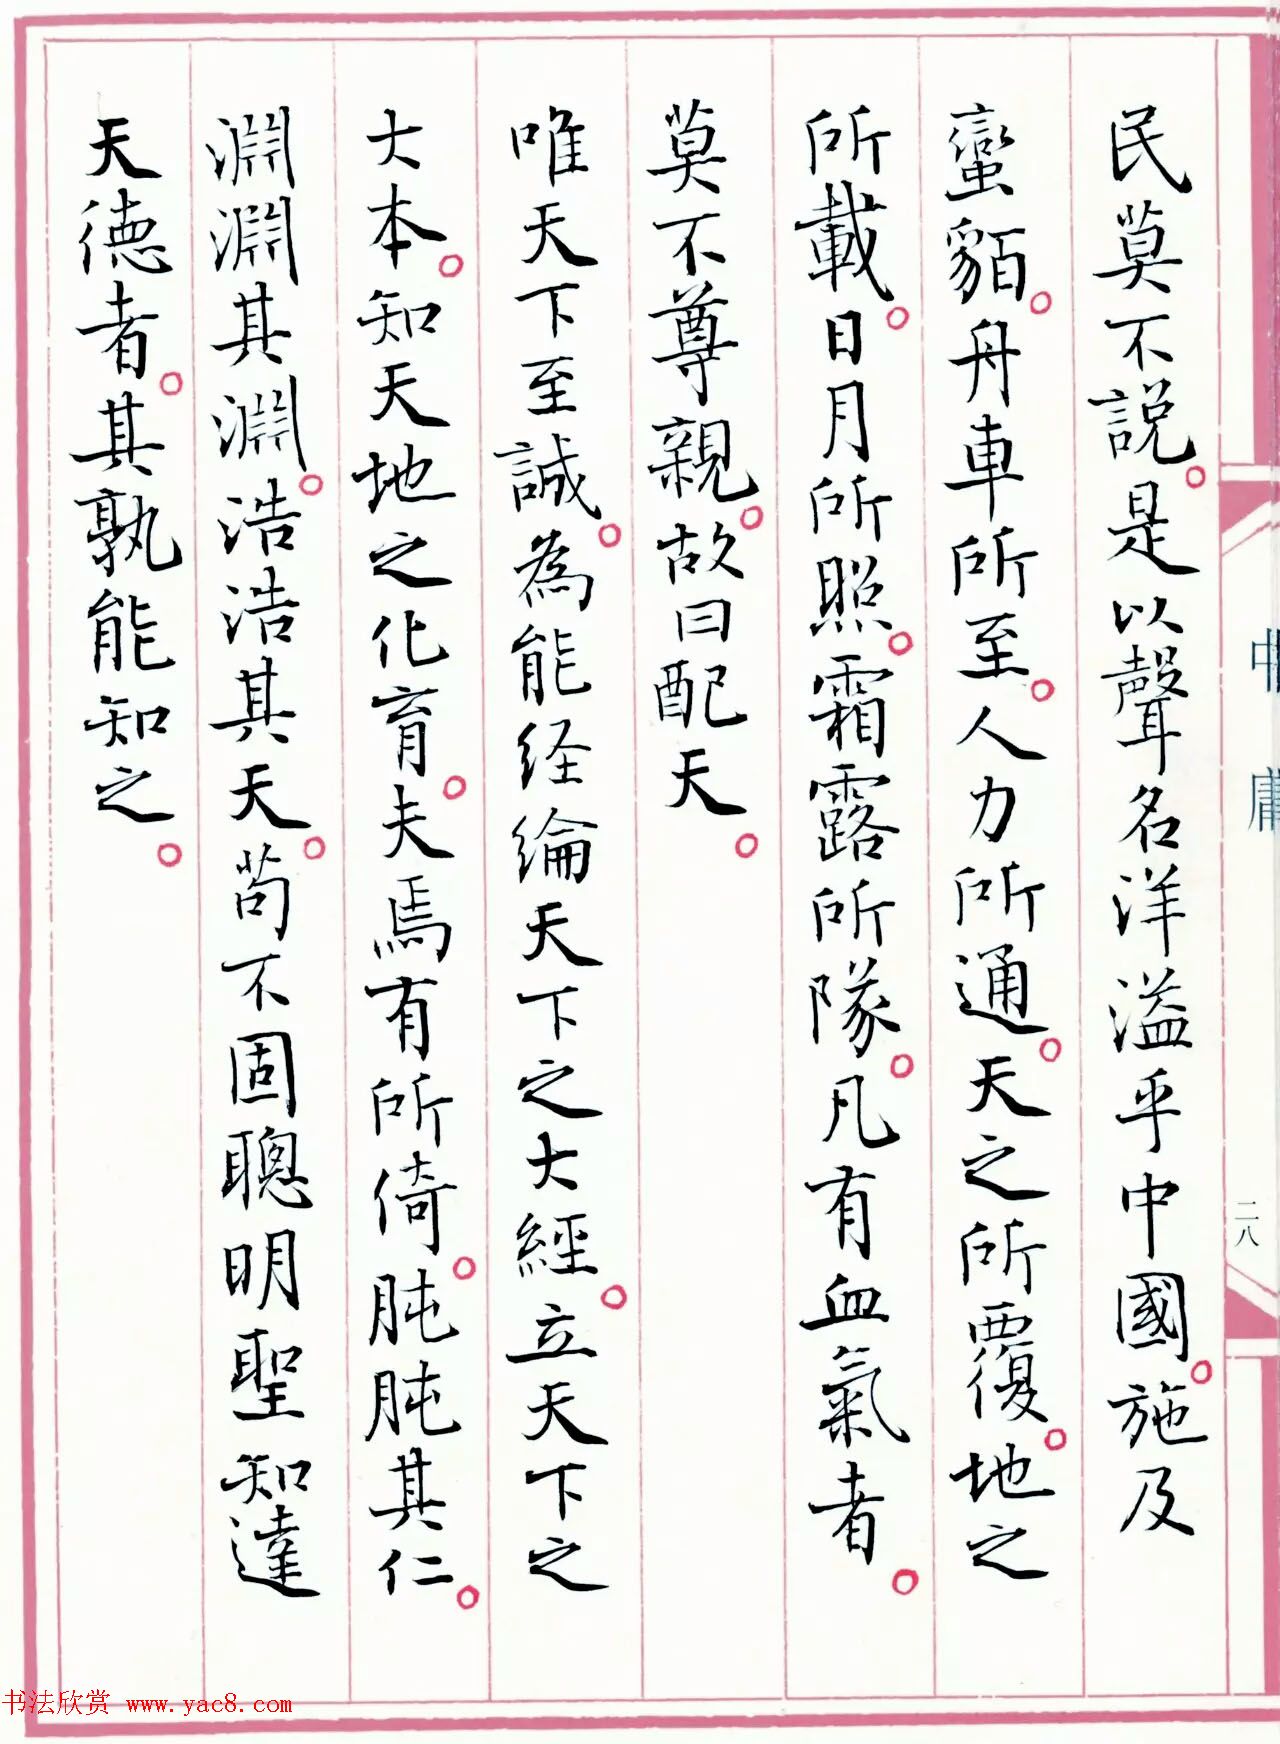 民莫不說。是以聲名洋溢乎中國。施及
蠻貊。舟車所至。人力所通。天之所覆。地之
所載。日月所照。霜露所隊。凡有血氣者。
莫不尊親。故曰配天。
唯天下至誠。為能経綸天下之大經。立天下之
大本。知天地之化育。夫焉有所倚。肫肫其仁。
淵淵其淵。浩浩其天。苟不固聰明聖知達
天德者。其孰能知之。
中庸
二八
书法欣赏 www.yac8.com